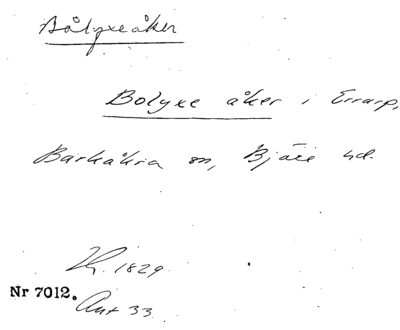 Bålyxeåker
Bolyxe åker i Errarp,
Barkåkra sn, Bjäre hd.
1829
Nr 7012.
Ant 33